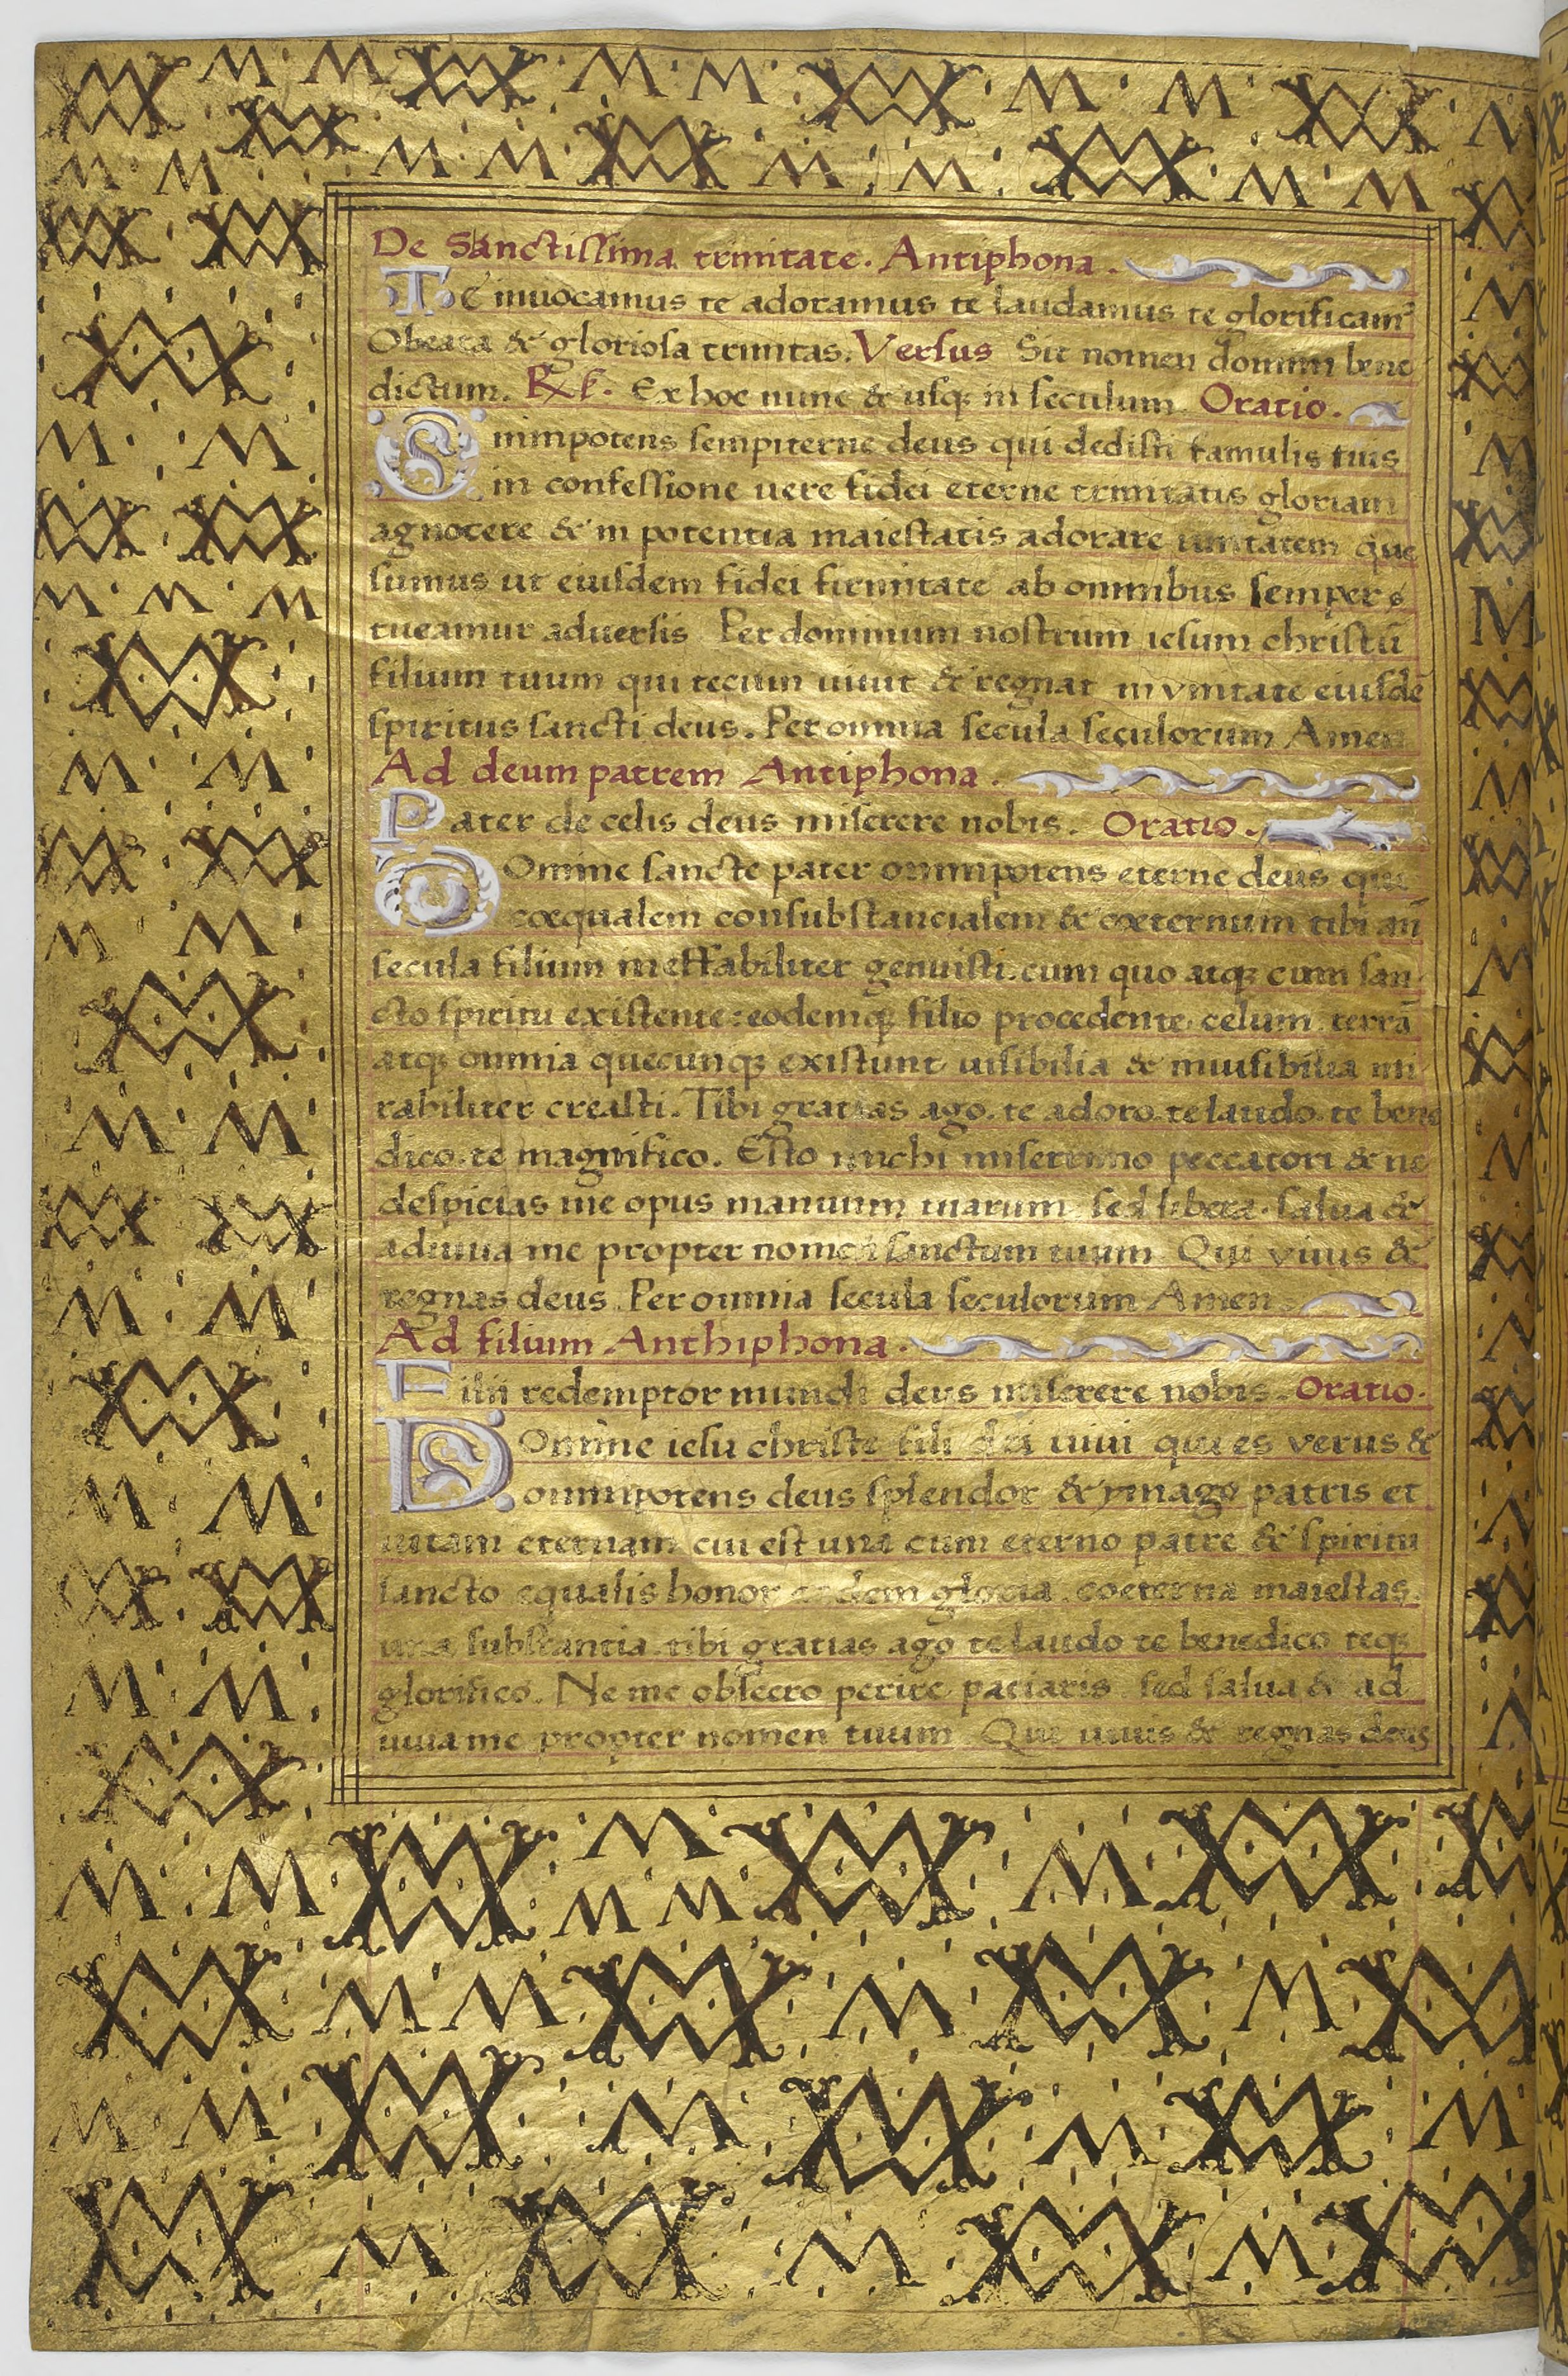 De Sanctissima trinitate. Antiphona.
Te inuocamus te adoramus te laudamus te glorificamꝰ
O beata & gloriosa trinitas. Versus Sit nomen domini bene
dictum. R/. Ex hoc nunc & usq; in seculum Oratio.
Omnipotens sempiterne deus qui dedisti famulis tuis
in confessione uere fidei eterne trinitatis gloriam
agnocere & in potentia maiestatis adorare unitatem que
sumus ut eiusdem fidei firmitate ab omnibus semper
tueamur aduersis Per dominum nostrum iesum christū
filium tuum qui tecum uiuit & regnat in vnitate eiusdē
spiritus sancti deus. Per omnia secula seculorum Amen
Ad deum patrem Antiphona.
Pater de celis deus miserere nobis. Oratio.
DOmine sancte pater omnipotens eterne deus qui
coequalem consubstancialem & coeternum tibi an̄
secula filium ineffabiliter genuisti. cum quo atq; cum san
cto spiritu existente: eodemq; filio procedente. celum. terrā
atq; omnia quecunq; existunt uisibilia & inuisibilia mi
rabiliter creasti. Tibi gratias ago. te adoro. te laudo. te bene
dico. te magnifico. Esto michi miserrimo peccatori & ne
despicias me opus manuum tuarum sed libera. salua &
adiuua me propter nomen sanctum tuum Qui viuis &
regnas deus. Per omnia secula seculorum Amen
Ad filium Anthiphona.
Filii redemptor mundi deus miserere nobis. Oratio.
DOmine iesu christe fili dei uiui qui es verus &
omnipotens deus splendor & ymago patris et
uitam eternam cui est una cum eterno patre & spiritu
sancto equalis honor eadem gloria. coeterna maiestas.
una substantia. tibi gratias ago te laudo te benedico teq;
glorifico. Ne me obsecro perire paciaris sed salua & ad
iuua me propter nomen tuum Qui uiuis & regnas deus